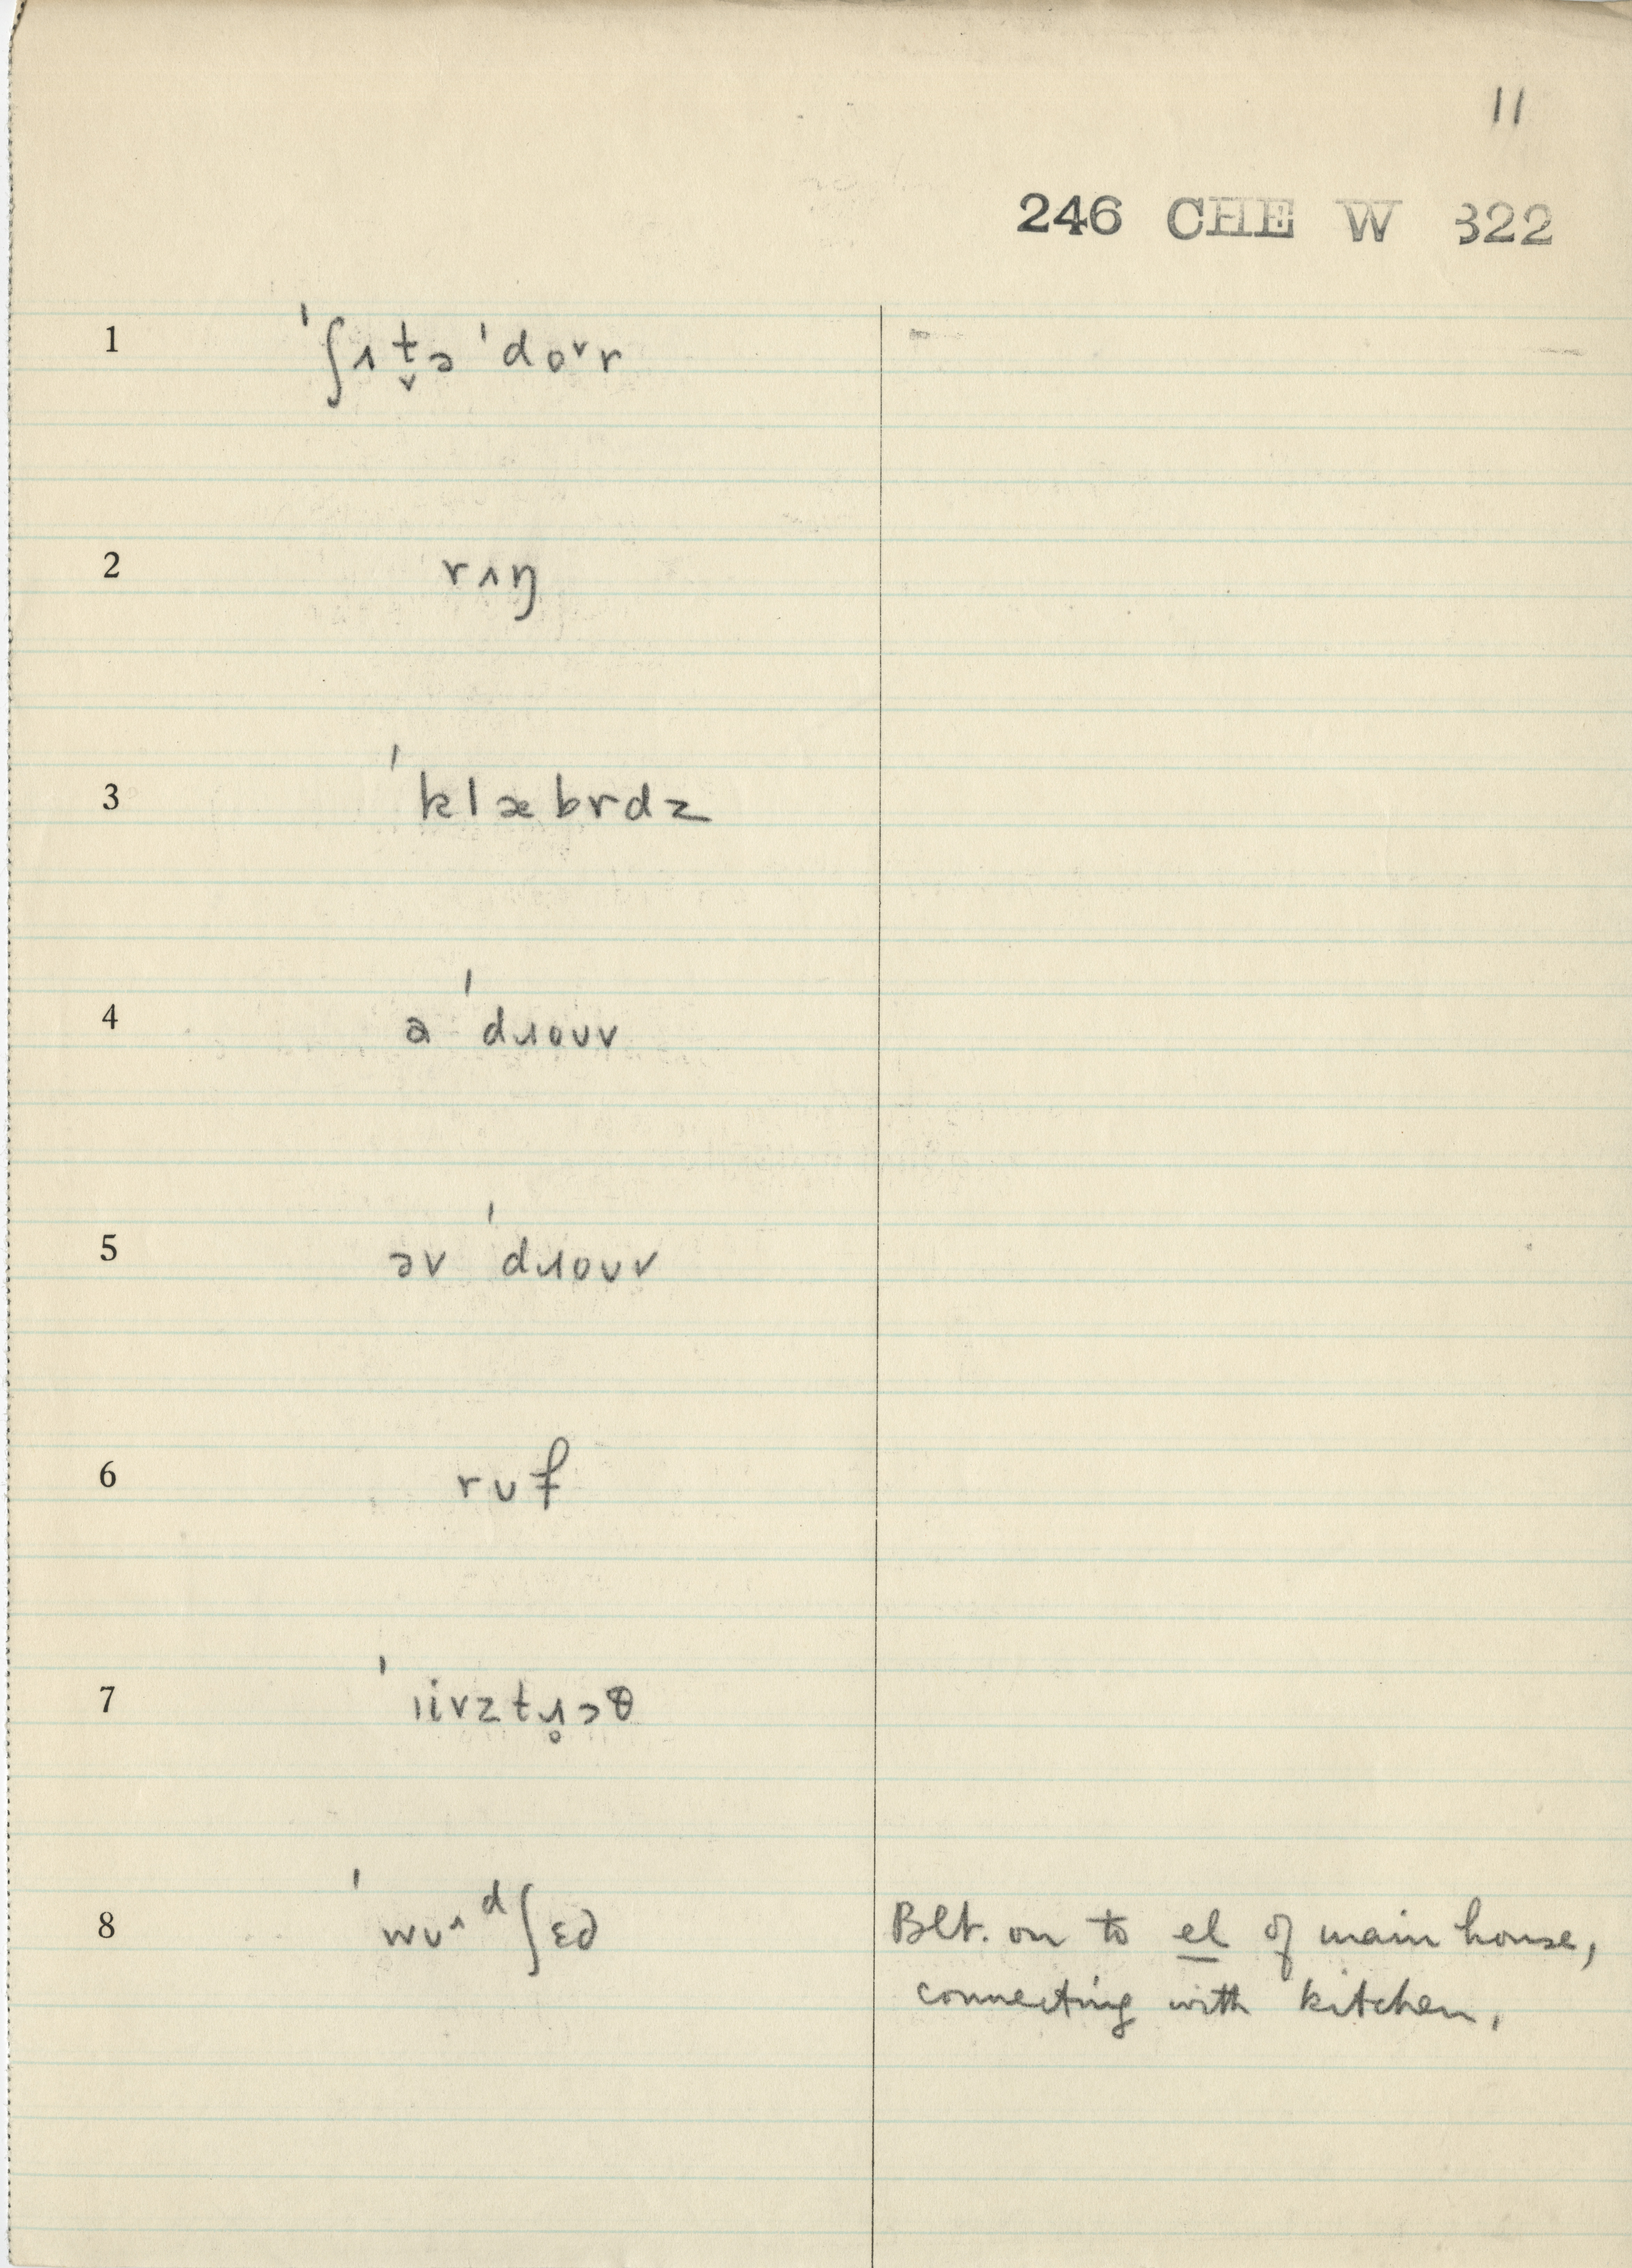 11
246 CHE W 322
1 ˈʃɪt̬ə ˈdoᵛr
2 rɪŋ
3 ˈklæbrdz
4 ə ˈdɹouv
5 əv ˈdɹouv
6 rʊf
7 ˈɪivztɹ̥ɔθ
8 ˈwʊ^ᵈʃɛd Blt. on to el of main house,
connecting with kitchen.